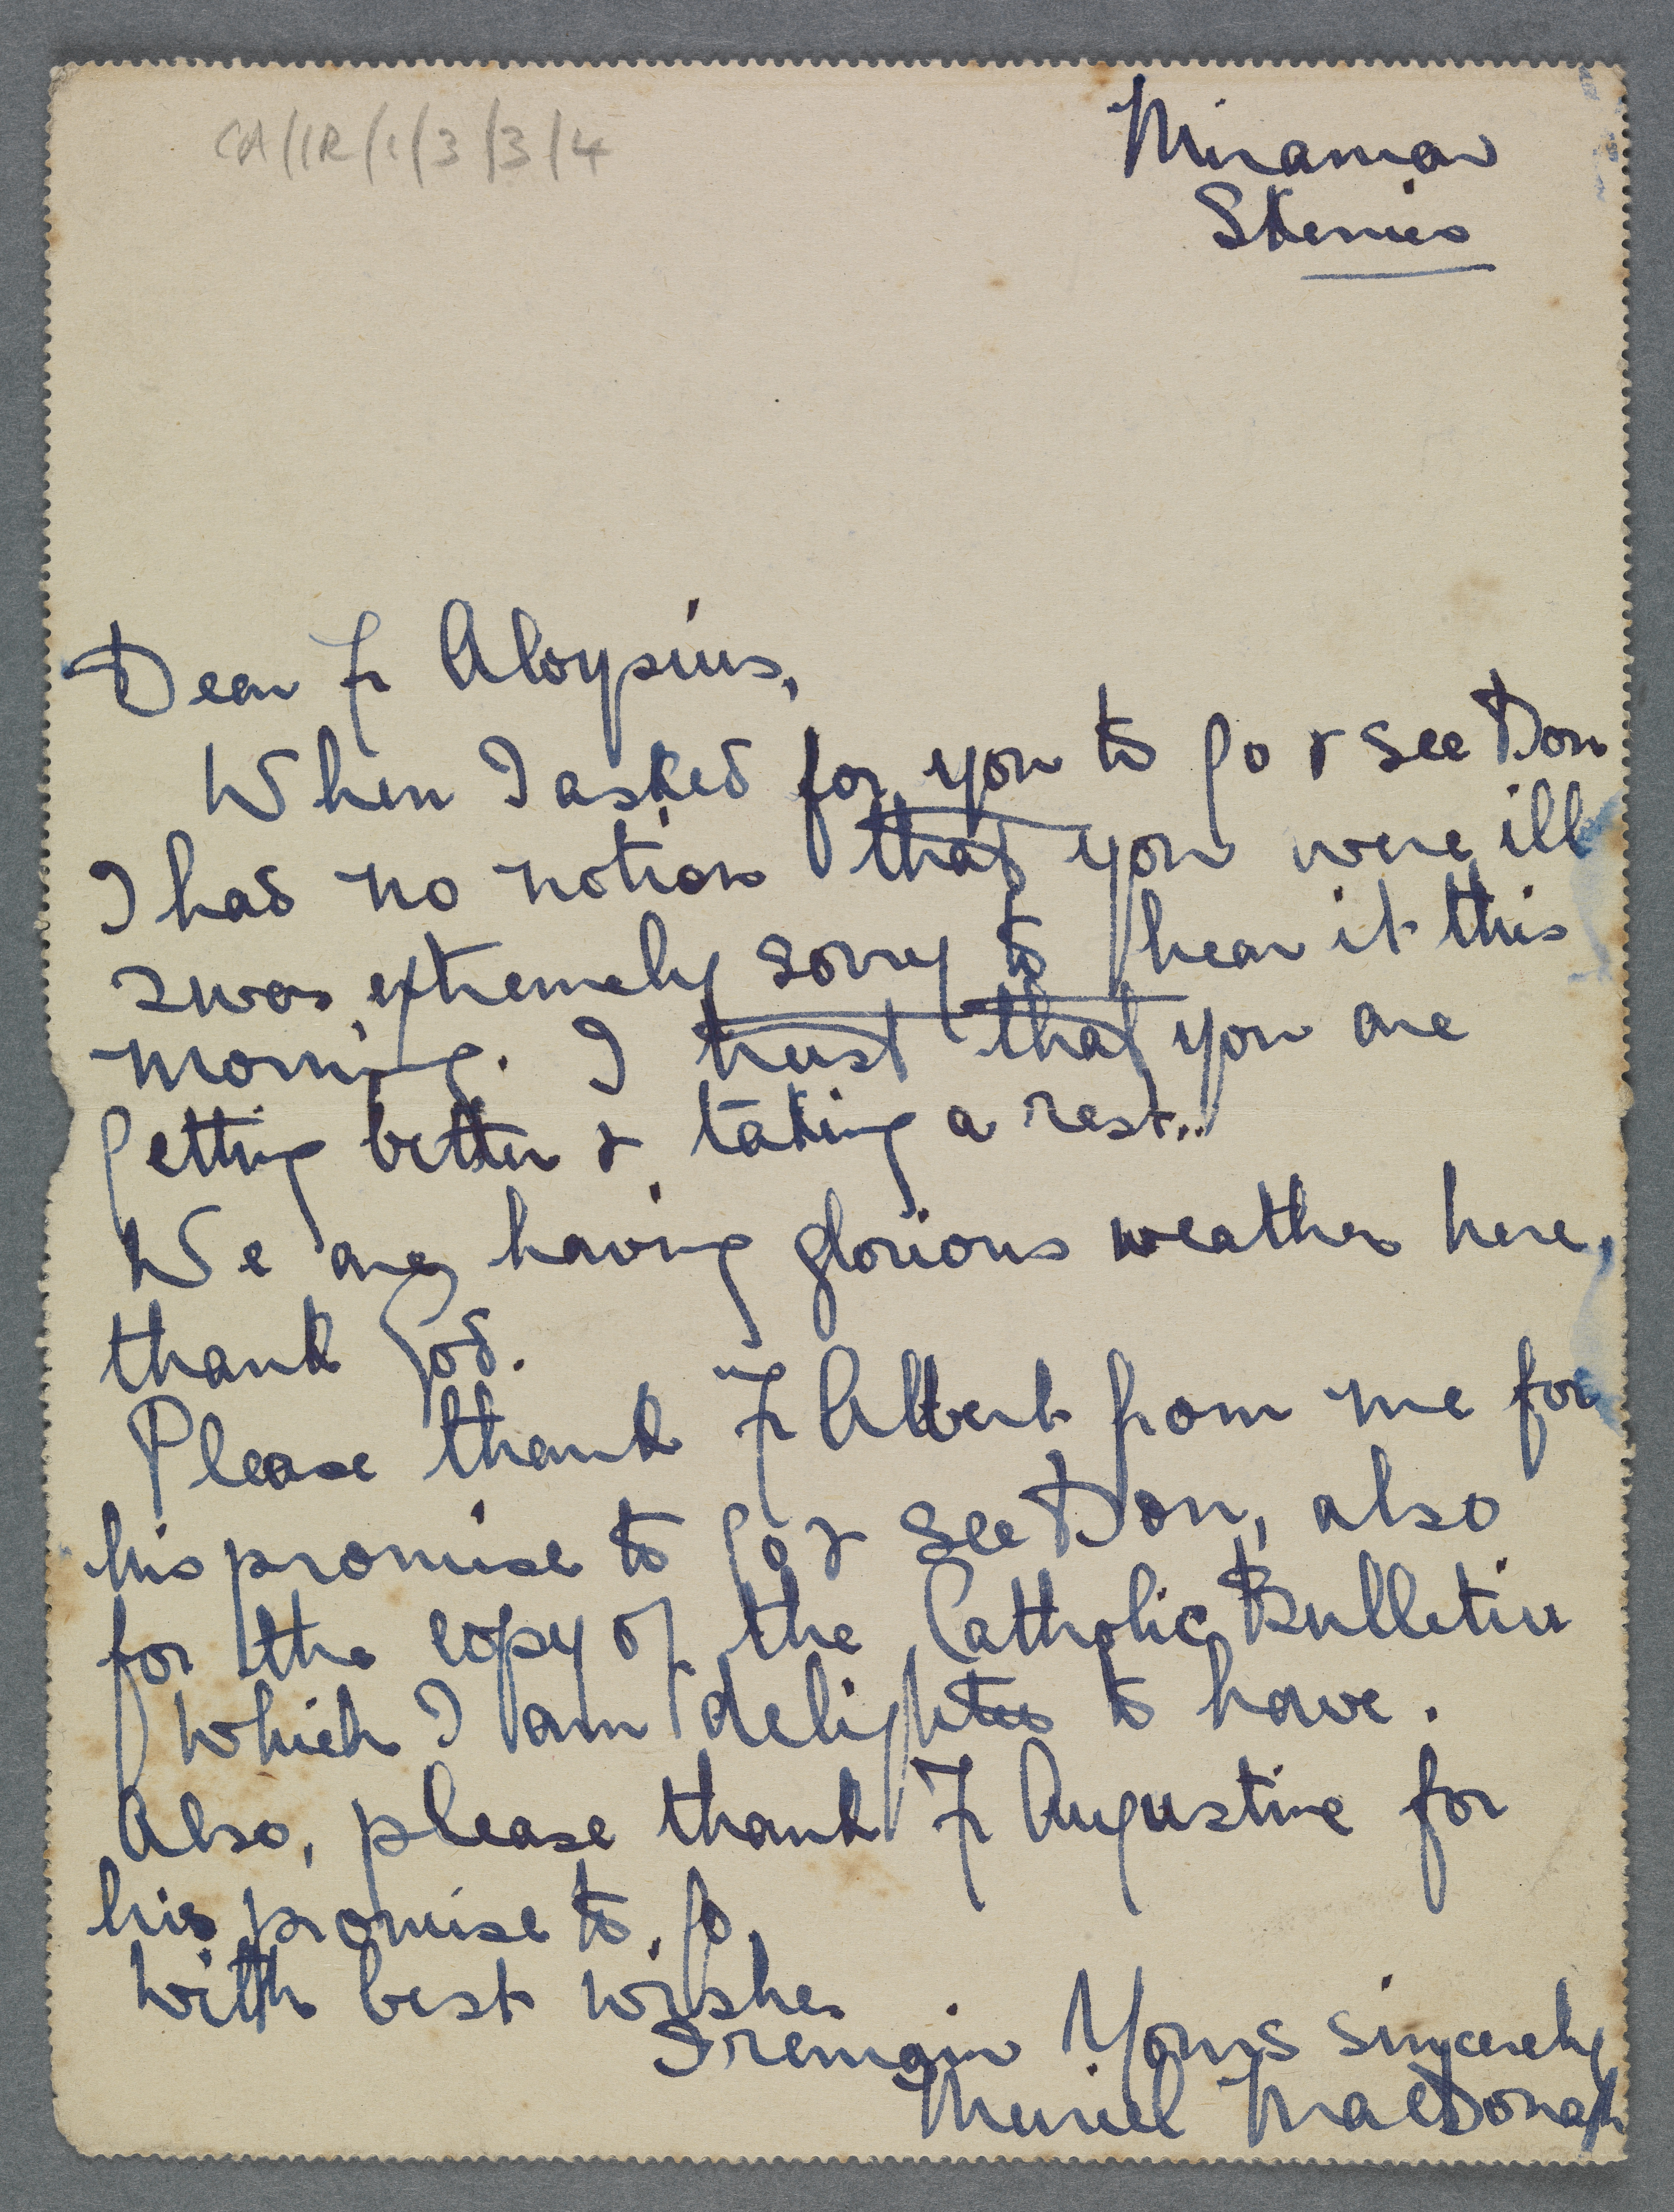 CA/IR/1/3/3/4
Miramar
Skerries
Dear Fr Aloysius,
When I asked for you to go & see Don
I had no notion that you were ill
I was extremely sorry to hear it this
morning. I trust that you are
getting better & taking a rest..
We are having glorious weather here,
thank God.
Please thank Fr Albert from me for
his promise to go & see Don, also
for the copy of the Catholic Bulletin
which I am delighted to have.
Also, please thank Fr Augustine for
his promise to go.
With best wishes
I remain Yours sincerely
Muriel MacDonagh